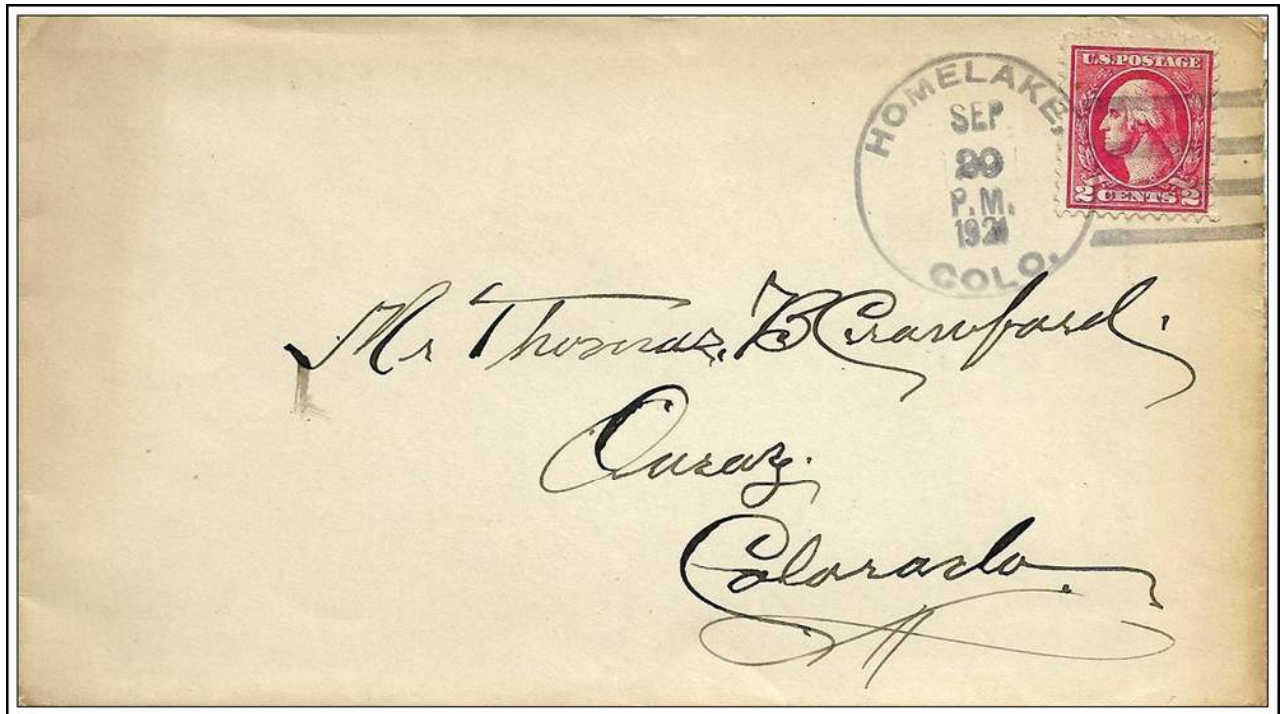 HOMELAKE,
SEP
P.M.
COLO.
U.S. POSTAGE
2 CENTS 2
Mr Thomas. B Crawford.
Ouray.
Colorado.